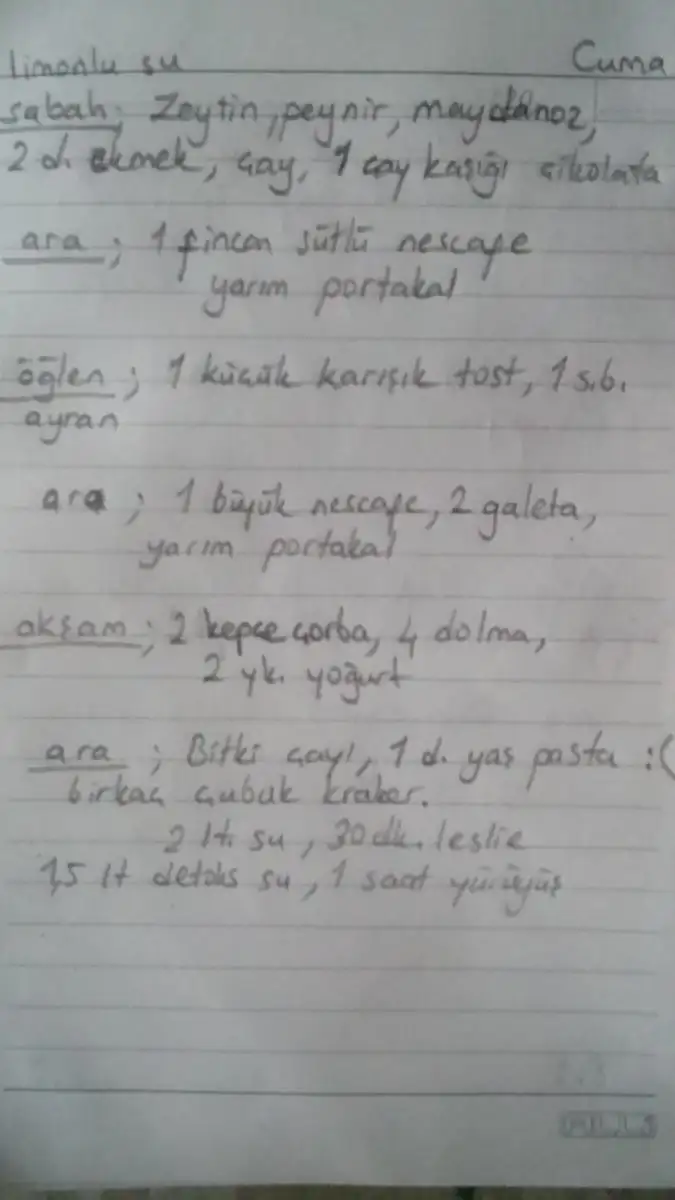 limonlu su Cuma
sabah; Zeytin, peynir, maydanoz,
2 d. ekmek, çay, 1 çay kaşığı çikolata
ara; 1 fincan sütlü nescafe
yarım portakal
öğlen; 1 küçük karışık tost, 1 s.b.
ayran
ara; 1 büyük nescafe, 2 galeta,
yarım portakal
akşam; 2 kepçe çorba, 4 dolma,
2 yk. yoğurt
ara; Bitki çayı, 1 d. yaş pasta :(
birkaç çubuk kraker.
2 lt. su, 30 dk. leslie
1,5 lt detoks su, 1 saat yürüyüş